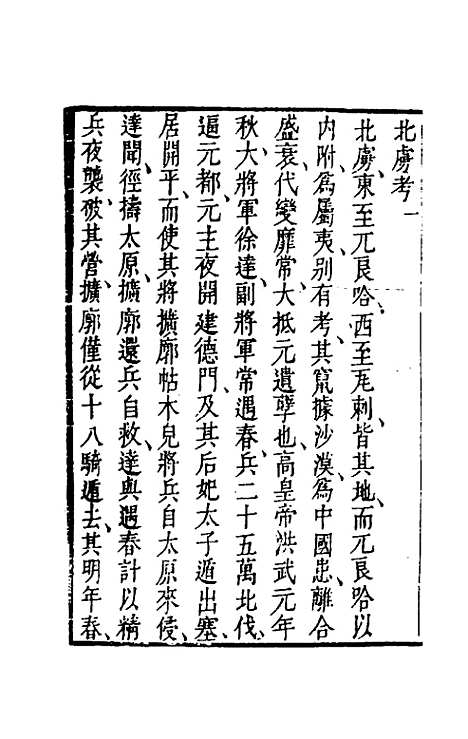 北虜考一
北虜、東至兀良哈、西至瓦剌、皆其地、而兀良哈以
內附爲屬夷、別有考、其竄據沙漠、爲中國患、離合
盛衰、代變靡常、大抵元遺孽也、高皇帝洪武元年
秋、大將軍徐達、副將軍常遇春、兵二十五萬北伐、
逼元都、元主夜開建德門、及其后妃太子遁出塞、
居開平、而使其將擴廓帖木兒將兵自太原來侵、
達聞、徑擣太原、擴廓還兵自救、達與遇春計以精
兵夜襲、破其營、擴廓僅從十八騎遁去、其明年春、